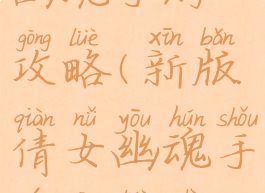 gōng lüè xīn bǎn
攻略(新版
qiàn nǚ yōu hún shǒu
倩女幽魂手